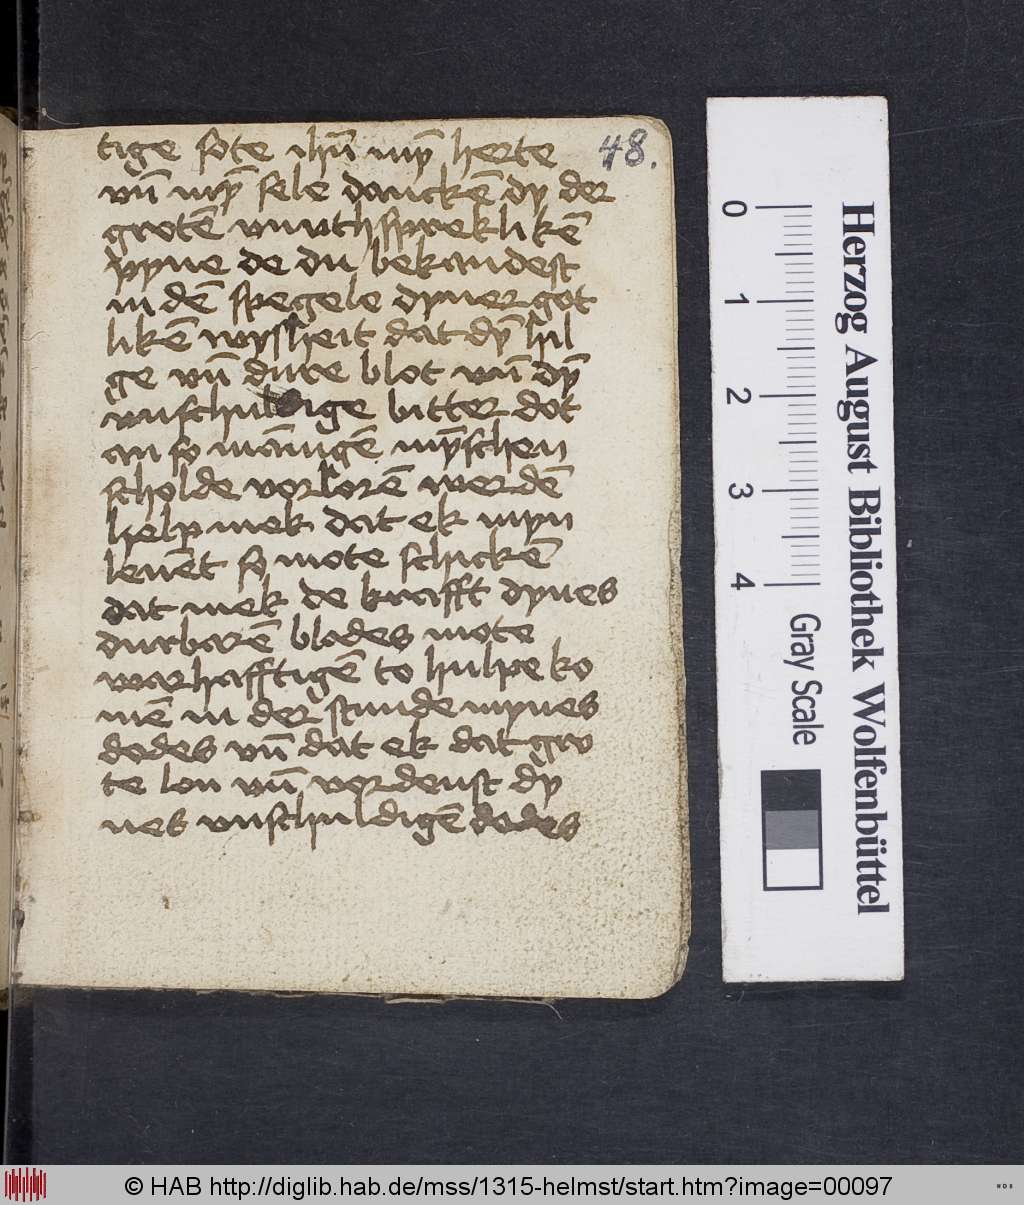 tige sote ihū myͫ herte
vn̄ myn̄ sele danckē dy der
grotē vnuthsprekli kē
pyne de du bekandest
in dē spegele dyner got
likē wysheit dat dyn̄ hil
ge vn̄ dure blot vn̄ dyn̄
vnschuldige bitter dot
an so mānigē mȳschen
scholde vorlorē werdē
help mek dat ek myn
leuēt so mote schickē
dat mek de krafft dynes
durbarē blodes mote
warhafftigē to hulpe ko
mē in der stunde mynes
dodes vn̄ dat ek dat gro
te lon vn̄ vordenst dy
nes vnschuldigē dodes
48.
0 1 2 3 4
Gray Scale
Herzog August Bibliothek Wolfenbüttel
© HAB http://diglib.hab.de/mss/1315-helmst/start.htm?image=00097